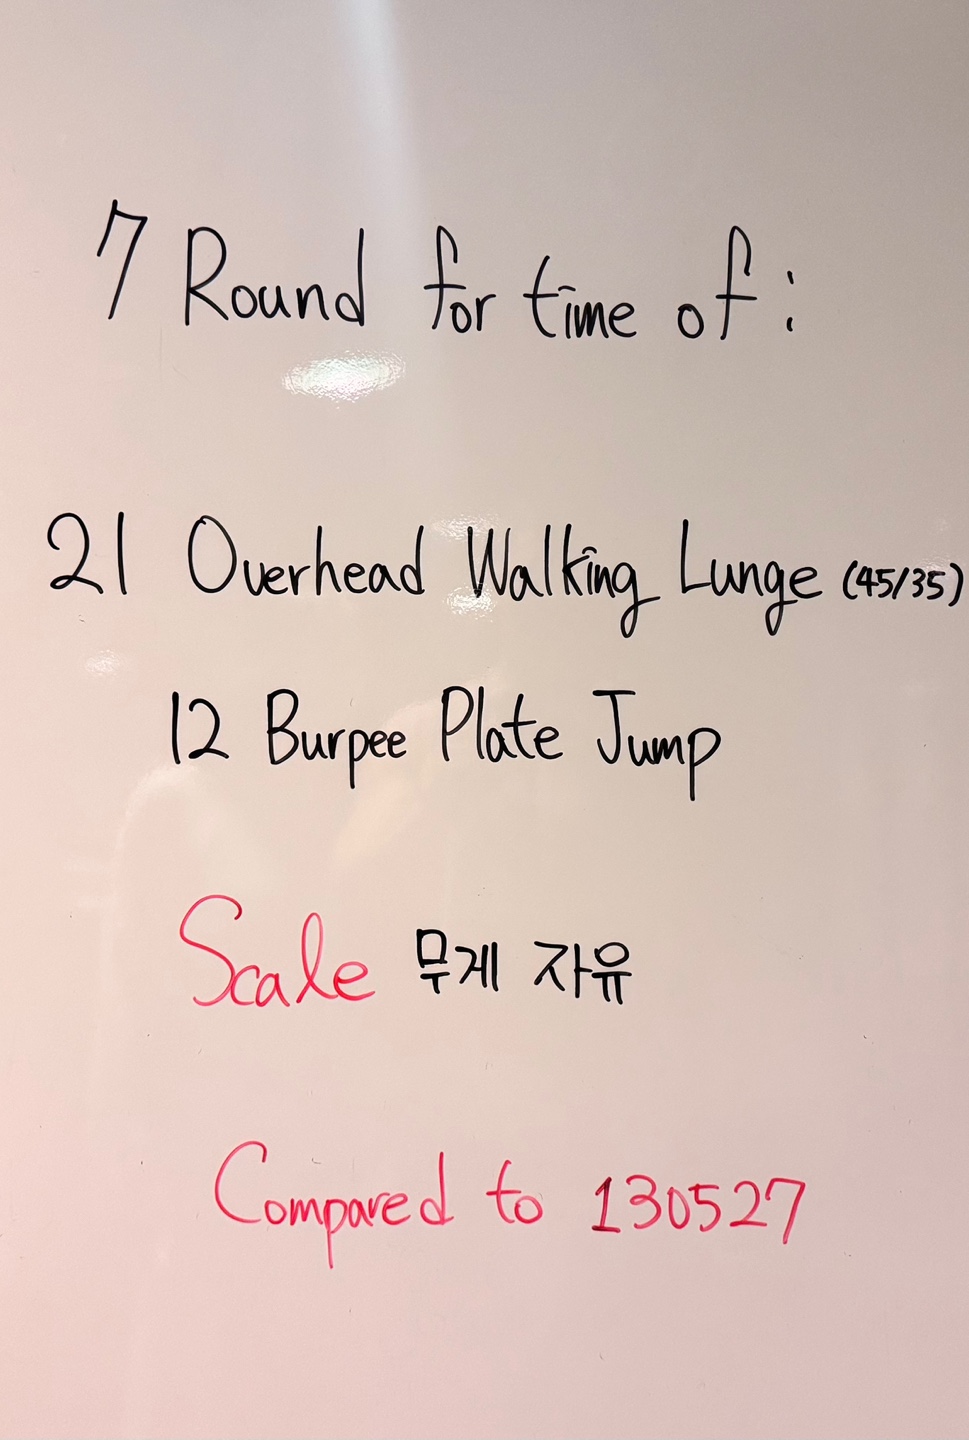 7 Round for time of:
21 Overhead Walking Lunge (45/35)
12 Burpee Plate Jump
Scale 무게 자유
Compared to 130527